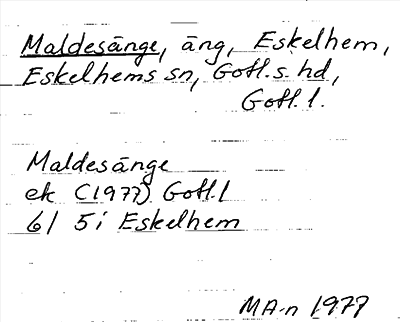 Maldesänge, äng, Eskelhem,
Eskelhems sn, Gotl. s. hd,
Gotl. l.
Maldesänge
ek (1977) Gotl. l
61 5i Eskelhem
MA-n 1977